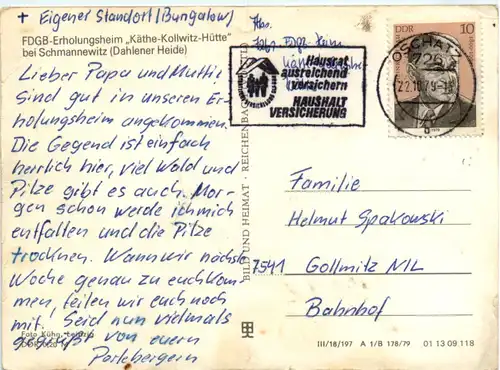 + Eigener Standort (Bungalow)
FDGB-Erholungsheim „Käthe-Kollwitz-Hütte"
bei Schmannewitz (Dahlener Heide)
Lieber Papa und Mutti!
Sind gut in unseren Er-
holungsheim angekommen.
Die Gegend ist einfach
herrlich hier, viel Wald und
Pilze gibt es auch. Mor-
gen schon werde ich mich
entfalten und die Pilze
trocknen. Wann wir nächste
Woche genau zu euch kom-
men, teilen wir euch noch
mit. Seid nun vielmals
gegrüßt von euern
Perlebergern
Foto Kühn, Leipzig
BILD UND HEIMAT · REICHENBACH
Abs.
Hausrat
ausreichend
versichern
HAUSHALT
VERSICHERUNG
DDR
10
OSCHATZ
726
22.10.79
Familie
Helmut Spakowski
7541 Gollmitz NIL
Bahnhof
III/18/197 A 1/B 178/79 01 13 09 118